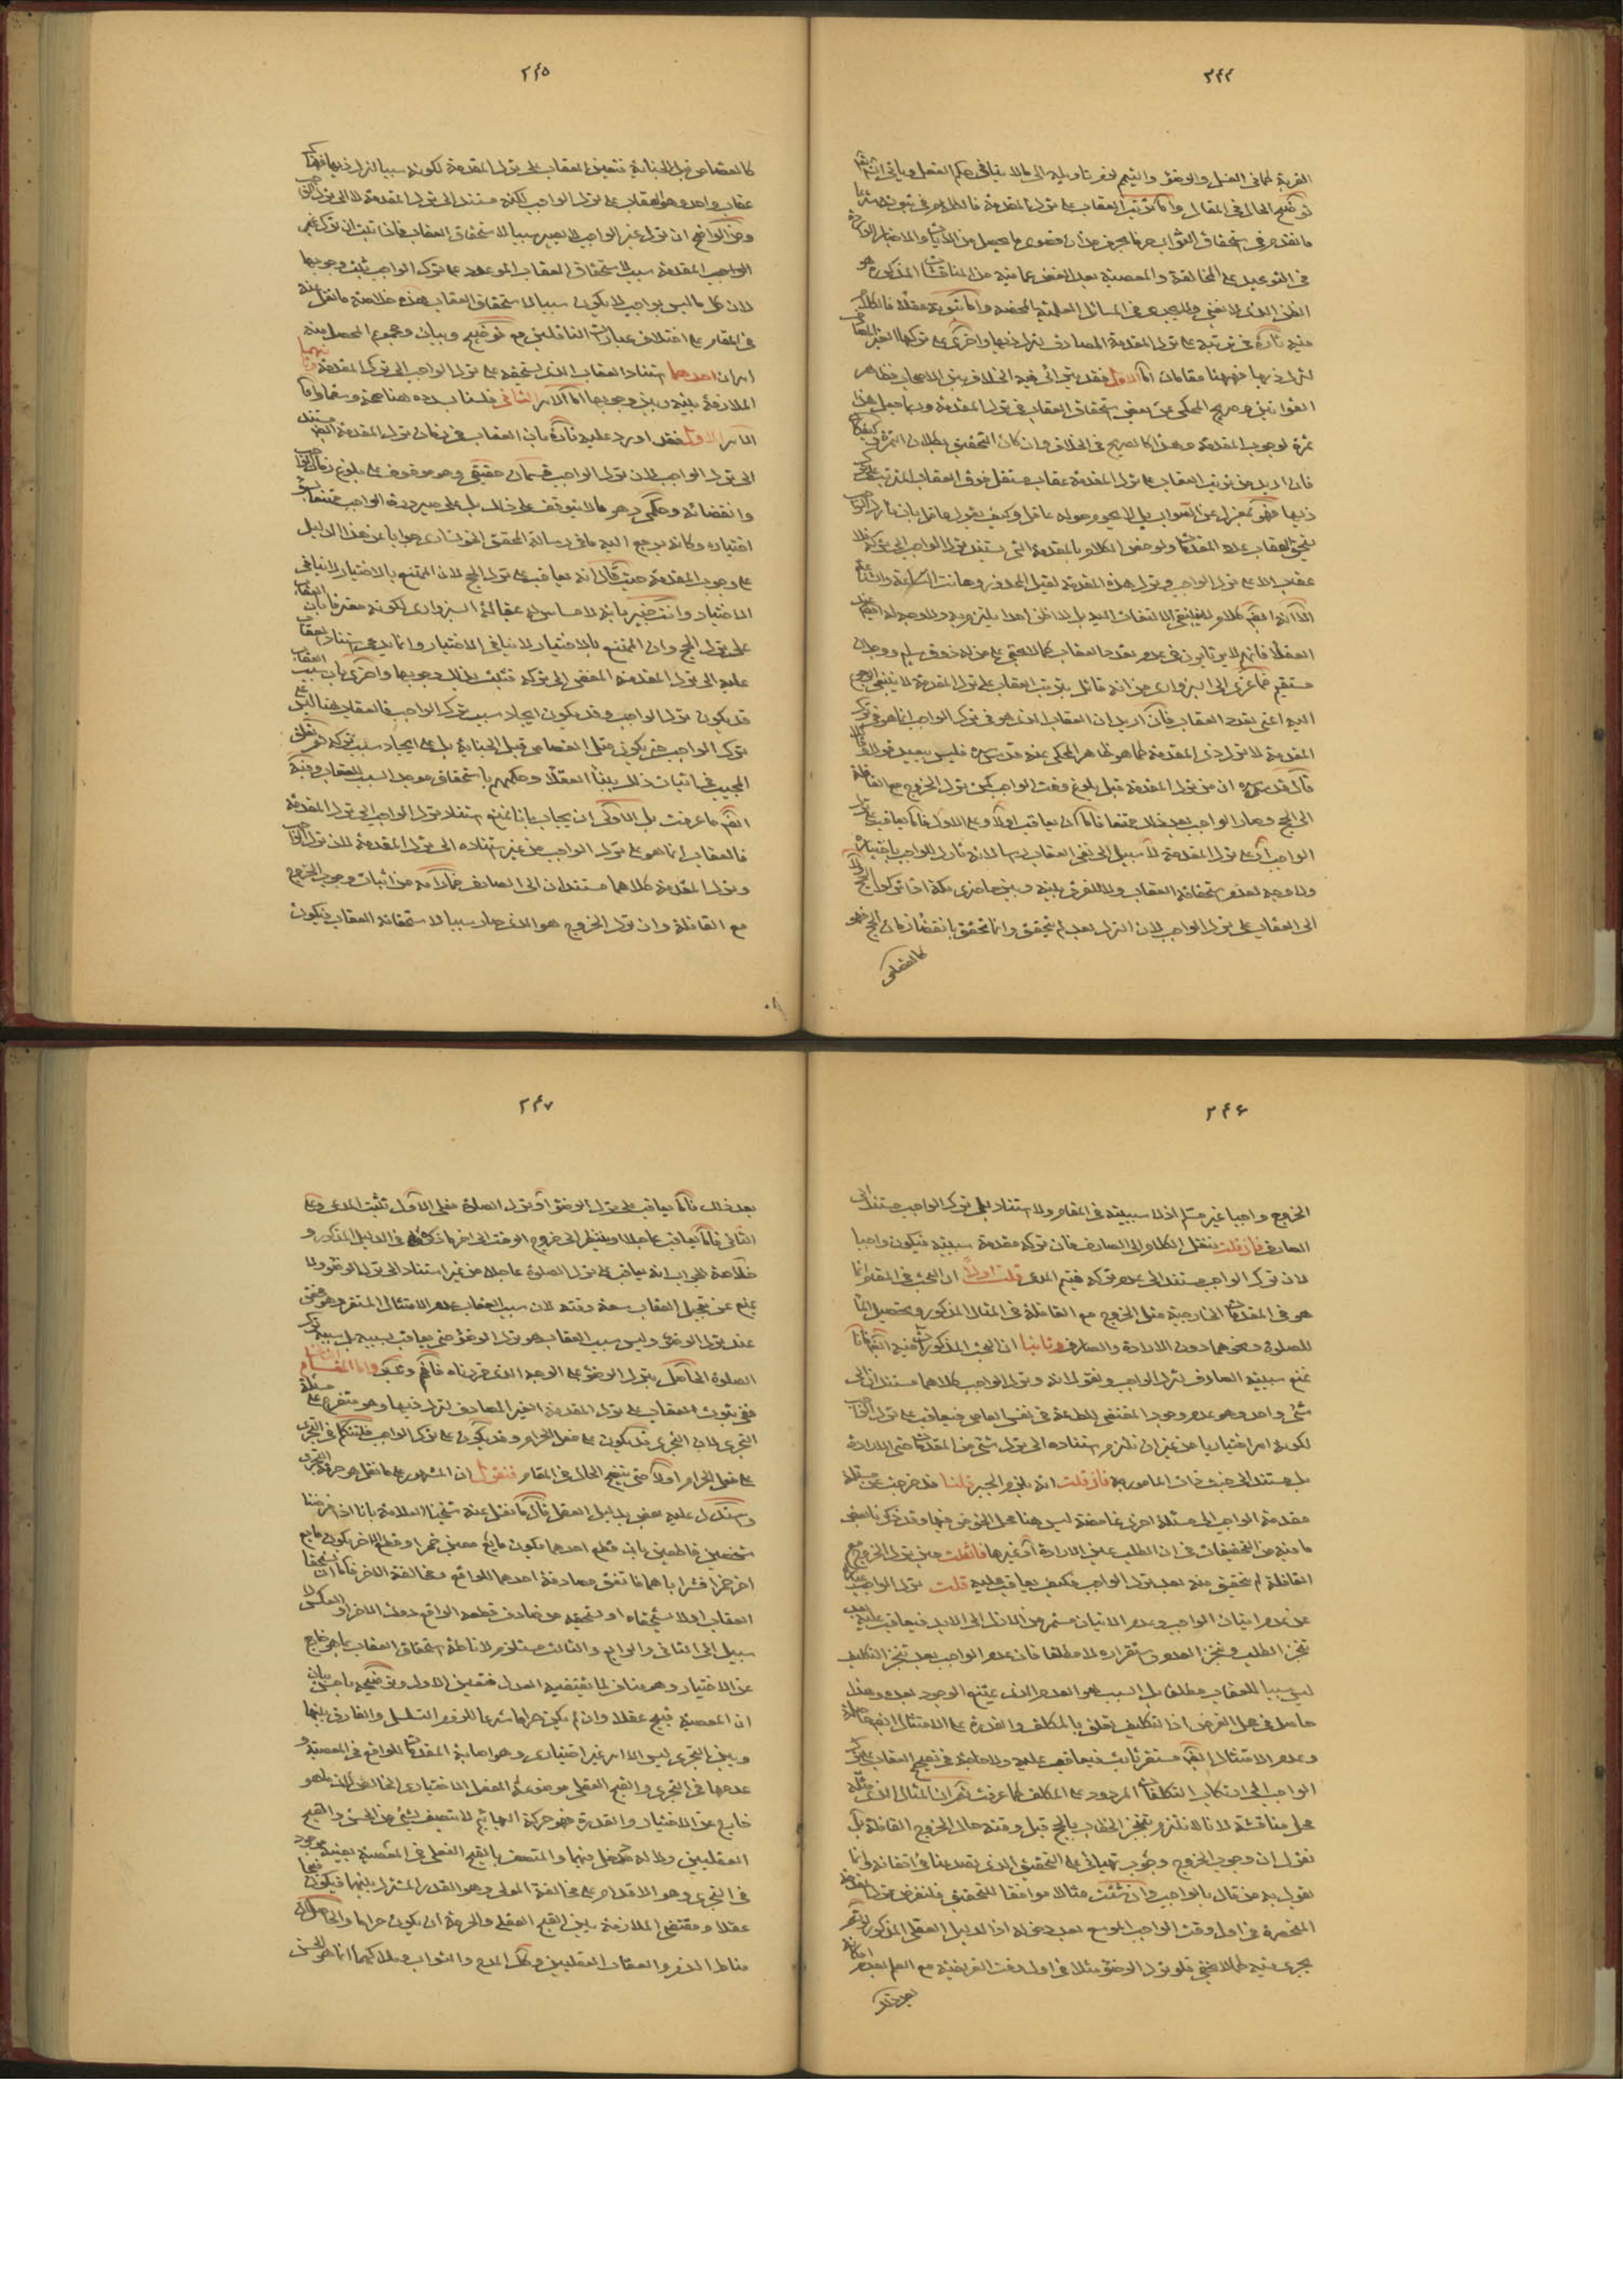 ٢٤٤
القربة كما فى الغسل والوضوء والتيمم
توضيح الحال فى المقال واما ترتب العقاب على ترك المقدمة فالكلام فى ثبوته
ما تقدم فى استحقاق الثواب
فى التوعيد على المخالفة والمعصية بعد الغض عما فيه من المناقشات المذكورة هو
الظن الذى لا يغنى فى المسائل العلمية المحضة واما ثبوته عقلا فالكلام
فيه تارة فى ترتبه على ترك المقدمة المصادف لترك ذيها واخرى على تركها الغير المصادف
لترك ذيها فههنا مقامان اما الاول فقد يترائى فيه الخلاف بين الاصحاب فظاهر
القوانين وصريح المحكى عن بعض استحقاق العقاب فى ترك المقدمة وربما جعل هذا
ثمرة لوجوب المقدمة وهذا كالصريح فى الخلاف وان كان التحقيق بطلان الثمرة
فان اريد من ترتب العقاب على ترك المقدمة عقاب مستقل فوق العقاب المترتب على ترك
ذيها فهو بمعزل عن الصواب بل لا يحوم حوله عاقل وكيف يقول عاقل بان تارك الواجب
يستحق العقاب بعدد المقدمات ولو خص الكلام بالمقدمة التى يستند ترك الواجب الى تركه فلا
عقاب الا على ترك الواجب وترك هذه المقدمة لقيل المحذور وهانت
الا انه ايضا كلام لا ينبغى الالتفات اليه بل لا اظن احدا يلتزم به ولا وجه له ايضا عند
العقلاء فانهم لا يرتابون فى عدم تعدد العقاب كما لا يخفى على من له ذوق سليم ووجدان
مستقيم فما عزى الى السبزوارى من انه قائل بترتب العقاب على ترك المقدمة لا ينبغى
اليه اعنى تعدد العقاب فان اريد ان العقاب الذى هو فى ترك الواجب انما هو فى ترك
المقدمة لا ترك ذى المقدمة كما هو ظاهر المحكى عنه قدس سره فليس ببعيد
قال قدس سره ان من ترك المقدمة قبل بلوغ وقت الواجب كمن ترك الخروج مع القافلة
الى الحج وصار الواجب بعد ذلك ممتنعا فاما ان يعاقب اولا وعلى الاول فاما يعاقب على ترك
الواجب او على ترك المقدمة لا سبيل الى نفى العقاب راسا لانه تارك للواجب باختياره
ولا وجه لعدم استحقاقه العقاب ولا للفرق بينه وبين حاضرى مكة اذا تركوا الحج ولا
الى العقاب على ترك الواجب لان الترك بعد لم يتحقق وانما يتحقق بانقضاء زمان الحج فهو
كالقصاص
٢٤٥
كالقصاص قبل الجناية فتعين العقاب على ترك المقدمة لكونه سببا لترك ذيها
عقاب واحد وهو العقاب على ترك الواجب لكنه مستند الى ترك المقدمة لا الى ترك الواجب
ومن الواضح ان ترك غير الواجب لا يصير سببا لاستحقاق العقاب فاذا ثبت ان ترك غير
الواجب المقدمة سبب لاستحقاق العقاب الموعود على ترك الواجب ثبت وجوبها
لان كل ما ليس بواجب لا يكون سببا لاستحقاق العقاب هذه خلاصة ما نقل عنه
فى المقام على اختلاف عبارات الناقلين مع توضيح وبيان ومجموع المحصل منه
امران احدهما استناد العقاب الذى يستحقه على ترك الواجب الى ترك المقدمة وثانيهما
الملازمة بينه وبين وجوبها اما الامر الثانى فلسنا بصدده هنا صحة وسقما واما
الامر الاول فقد اورد عليه تارة بان العقاب فى زمان ترك المقدمة ايضا مستند
الى ترك الواجب لان ترك الواجب قسمان حقيقى وهو موقوف على بلوغ زمان الواجب
وانقضائه وحكمى وهو ما لا يتوقف على ذلك بل على صيرورة الواجب ممتنعا
اختياره وكانه يرجع اليه ما فى رسالة المحقق الخونسارى جوابا عن هذا الدليل
على وجوب المقدمة حيث قال انه يعاقب على ترك الحج لان الممتنع بالاختيار لا ينافى
الاختيار وانت خبير بانه لا مساس له بمقالة السبزوارى لكونه معترفا بان العقاب
على ترك الحج وان الممتنع بالاختيار لا ينافى الاختيار وانما يدعى استناد العقاب
عليه الى ترك المقدمة المفضى الى تركه فثبت بذلك وجوبها واخرى بان سبب العقاب
قد يكون ترك الواجب وقد يكون ايجاد سبب ترك الواجب فالعقاب هنا ليس على
ترك الواجب حتى يكون مثل القصاص قبل الجناية بل على ايجاد سبب تركه
المجيب فى اثبات ذلك ببناء العقلاء وحكمهم باستحقاق موجد السبب للعقاب وفيه
ايضا ما عرفت بل الاولى ان يجاب بانا نمنع استناد ترك الواجب الى ترك المقدمة
فالعقاب انما هو على ترك الواجب من غير استناده الى ترك المقدمة لان ترك الواجب
وترك المقدمة كلاهما مستندان الى الصارف فما رامه من اثبات وجوب الخروج
مع القافلة وان ترك الخروج هو الذى صار سببا لاستحقاقه العقاب فيكون
٢٤٦
الخروج واجبا غير مسلم اذ لا سببية فى المقام ولا استناد بل ترك الواجب مستند الى
الصارف فان قلت ننقل الكلام الى الصارف فان تركه مقدمة سببية فيكون واجبا
لان ترك الواجب مستند الى عدم تركه فيتم المدعى قلت اولا ان البحث فى المقام انما
هو فى المقدمات الخارجية مثل الخروج مع القافلة فى المثال المذكور وتحصيل الماء
للصلوة ونحوهما دون الارادة والصارف وثانيا ان البحث المذكور ات فيه ايضا فانا
نمنع سببية الصارف لترك الواجب ونقول انه وترك الواجب كلاهما مستندان الى
شئ واحد وهو عدم وجود المقتضى للطاعة فى نفس العاصى فيعاقب على ترك الواجب
لكونه امرا اختياريا من غير ان نلتزم استناده الى ترك شئ من المقدمات حتى الارادة
بل يستند الى خبث ذات المامور به فان قلت انه يلزم الجبر قلنا قد خرجت عن مسئلة
مقدمة الواجب الى مسئلة اخرى غامضة ليس هنا محل الخوض فيها وقد ذكرنا بعض
ما فيه من التحقيقات فى ان الطلب عين الارادة او غيرها فان قلت حين ترك الخروج مع
القافلة لم يتحقق منه بعد ترك الواجب فكيف يعاقب عليه قلت ترك الواجب عبارة
عن عدم اتيان الواجب وعدم الاتيان مستمر من الازل الى الابد فيعاقب عليه بعد
تنجز الطلب وتنجز العدم واستقراره لا مطلقا فان عدم الواجب بعد تنجز التكليف
ليس سببا للعقاب مطلقا بل السبب هو العدم الذى يمتنع الوجود بعده وهذا
حاصل فى محل الفرض اذ التكليف تعلق بالمكلف والقدرة على الامتثال ايضا حاصلة
وعدم الامتثال ايضا مستقر ثابت فيعاقب عليه ولا حاجة فى تصحيح العقاب على ترك
الواجب الى ارتكاب التكلفات المردود على المكلف كما عرفت ثم ان المثال الذى مثله
محل مناقشة لانا لا نلتزم بتنجز الخطاب بالحج قبل وقته حال الخروج القافلة بل
نقول ان وجوب الخروج وجوب تهيائى على التحقيق الذى تصدينا فى اتقانه وانما
يقول به من قال بالواجب وان شئت مثالا موافقا للتحقيق فلنفرض ترك المقدمة
المنحصرة فى اول وقت الواجب الموسع بعد دخوله اذ الدليل العقلى المذكور لو تم
يجرى فيه كما لا يخفى فلو ترك الوضوء مثلا فى اول وقت الفريضة مع العلم بعدم امكانه
بعد ذلك
٢٤٧
بعد ذلك فاما يعاقب على ترك الوضوء او ترك الصلوة فعلى الاول ثبت المدعى وعلى
الثانى فاما يعاقب عاجلا او ينتظر الى خروج الوقت الى اخر ما ذكره فى الدليل المذكور و
خلاصة الجواب انه يعاقب على ترك الصلوة عاجلا من غير استناد الى ترك الوضوء ولا
يمنع عن تعجيل العقاب سعة وقته لان سبب العقاب عدم الامتثال المتقرر وهو متحقق
عند ترك الوضوء وليس سبب العقاب هو ترك الوضوء حتى يعاقب بسببه بل سببه ترك
الصلوة الحاصل بترك الوضوء على الوجه الذى قررناه فافهم وتبصر واما المقام الثانى
ففى ثبوت العقاب على ترك المقدمة الغير المصادف لترك ذيها وهو متفرع على مسئلة
التجرى لان التجرى قد يكون على فعل الحرام وقد يكون على ترك الواجب فلنتكلم فى التجرى
على فعل الحرام اولا حتى يتضح الحال فى المقام فنقول ان المشهور على ما نقل هو حرمة التجرى
واستدل عليه بعض بدليل العقل قال ما نقل عنه شيخنا العلامة بانا اذا فرضنا
شخصين قاطعين بان قطع احدهما بكون مايع معين خمرا وقطع الاخر بكون مايع
اخر خمرا فشرباهما فاتفق مصادفة احدهما للواقع ومخالفة الاخر فاما ان يستحقا
العقاب او لا يستحقاه او يستحقه من صادف قطعه الواقع دون الاخر او العكس لا
سبيل الى الثانى والرابع والثالث مستلزم لاناطة استحقاق العقاب بما هو خارج
عن الاختيار وهو مناف لما يقتضيه العدل فتعين الاول وتوضيحه باحسن بيان
ان المعصية قبيح عقلا وان لم يكن حراما شرعا للزوم التسلسل والفارق بينها
وبين التجرى ليس الا امر غير اختيارى وهو اصابة المقدمات للواقع فى المعصية و
عدمها فى التجرى والقبح العقلى موضوعه الفعل الاختيارى الخالص لان ما هو
خارج عن الاختيار والقدرة فهو حركة البهائم لا يتصف بشئ من الحسن والقبح
العقليين ولا له مدخل فيهما والمتصف بالقبح الفعلى فى المعصية بعينه موجود
فى التجرى وهو الاقدام على مخالفة المولى وهو القدر المشترك بينهما فيكون قبيحا
عقلا ومقتضى الملازمة بين القبح العقلى والحرمة ان يكون حراما والحاصل ان
مناط الذم والعقاب العقليين وكذا المدح والثواب وملاكهما انما هو الحسن